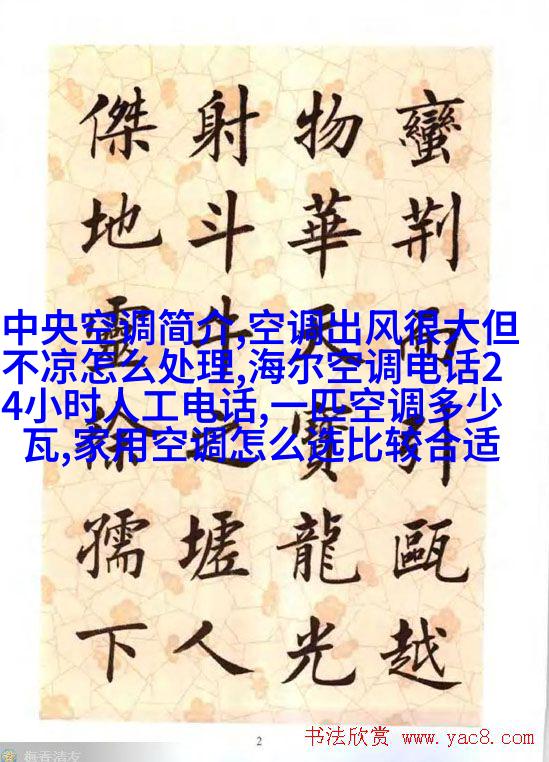 蠻荆而引甌越
物華天寶龍光
射斗牛之墟人
傑地靈徐孺下
中央空调简介,空调出风很大但
不凉怎么处理,海尔空调电话2
4小时人工电话,一匹空调多少
瓦,家用空调怎么选比较合适
2
书法欣赏 www.yac8.com